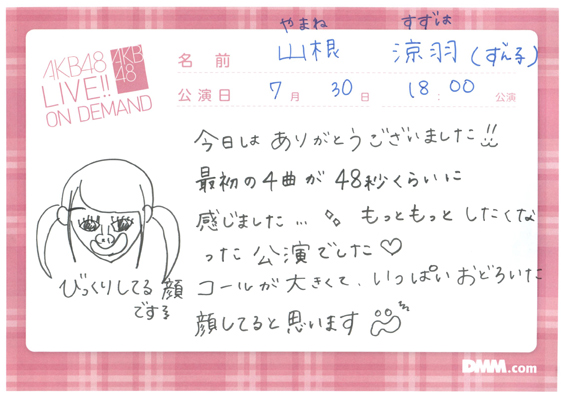 AKB48
LIVE!!
ON DEMAND
AKB
48
やまね すずは
名前 山根 涼羽(ずんちゃん)
公演日 7月 30日 18:00 公演
今日は ありがとうございました!!
最初の4曲が 48秒くらいに
感じました... もっともっと したくな
った 公演でした♡
コールが 大きくて、いっぱいおどろいた
顔してると思います
びっくりしてる 顔
です
DMM.com